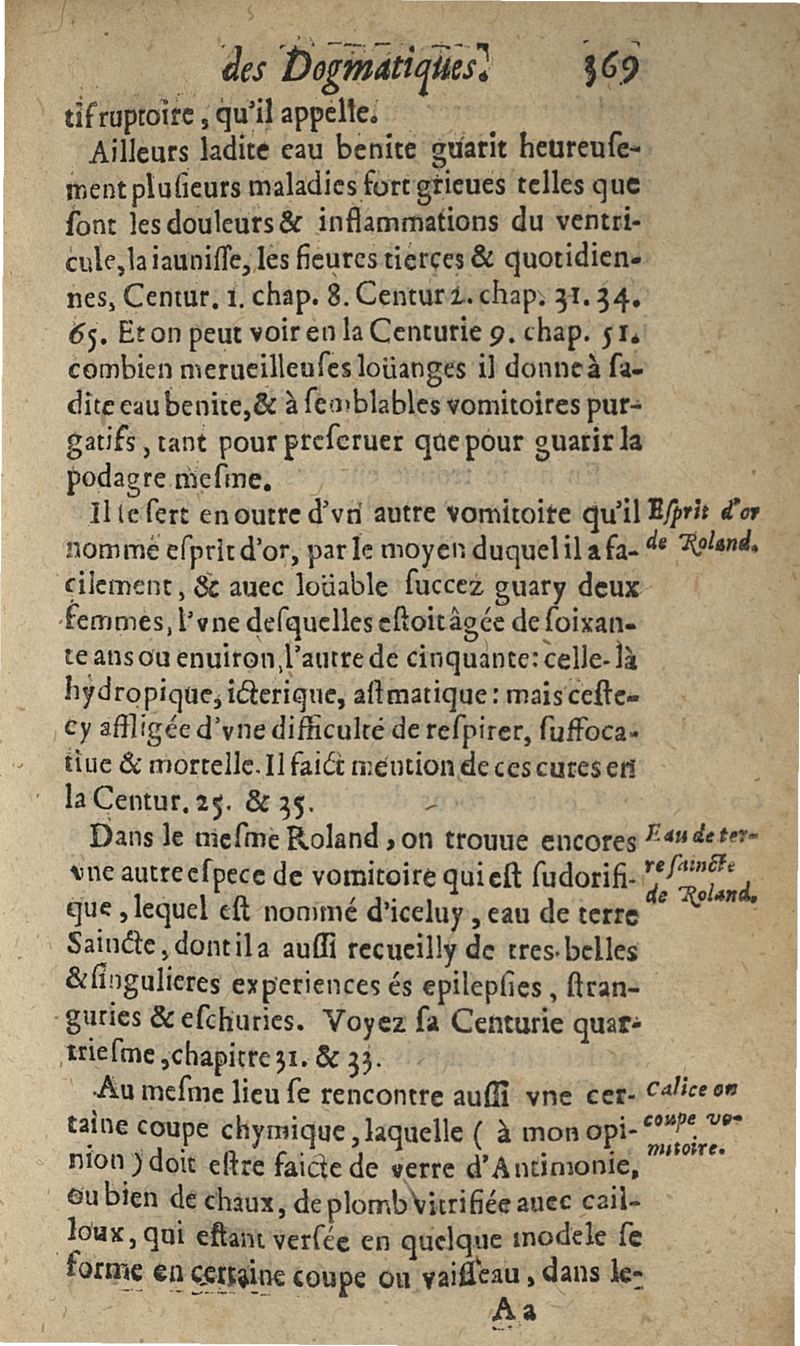 des Dogmatiques. 369
tif ruptoire, qu'il appelle.
Ailleurs ladite eau benite guarit heureuſe-
ment pluſieurs maladies fort grieues telles que
ſont les douleurs & inflammations du ventri-
cule, la iauniſſe, les fieures tierces & quotidien-
nes, Centur. 1. chap. 8. Centur 2. chap. 31. 34.
65. Et on peut voir en la Centurie 9. chap. 51.
combien merueilleuſes loüanges il donne à ſa-
dite eau benite, & à ſemblables vomitoires pur-
gatifs, tant pour preſeruer que pour guarir la
podagre meſme.
Il ſe ſert en outre d'vn autre vomitoire qu'il
nommé eſprit d'or, par le moyen duquel il a fa-
cilement, & auec loüable ſuccez guary deux
femmes, l'vne deſquelles eſtoit âgée de ſoixan-
te ans ou enuiron, l'autre de cinquante: celle-là
hydropique, icterique, aſtmatique: mais ceſte-
cy affligée d'vne difficulté de reſpirer, ſuffoca-
tiue & mortelle. Il faict mention de ces cures en
la Centur. 25. & 35.
Eſprit d'or
de Roland.
Dans le meſme Roland, on trouue encores
vne autre eſpece de vomitoire qui eſt ſudorifi-
que, lequel eſt nommé d'iceluy, eau de terre
Saincte, dont il a auſſi recueilly de tres-belles
& ſingulieres experiences és epilepſies, ſtran-
guries & eſchuries. Voyez ſa Centurie quar-
trieſme, chapitre 31. & 33.
Eau de ter-
re ſaincte
de Roland.
Au meſme lieu ſe rencontre auſſi vne cer-
taine coupe chymique, laquelle ( à mon opi-
nion ) doit eſtre faicte de verre d'Antimonie,
ou bien de chaux, de plomb vitrifiée auec cail-
loux, qui eſtant verſée en quelque modele ſe
forme en certaine coupe ou vaiſſeau, dans le-
Calice ou
coupe vo-
mitoire.
Aa